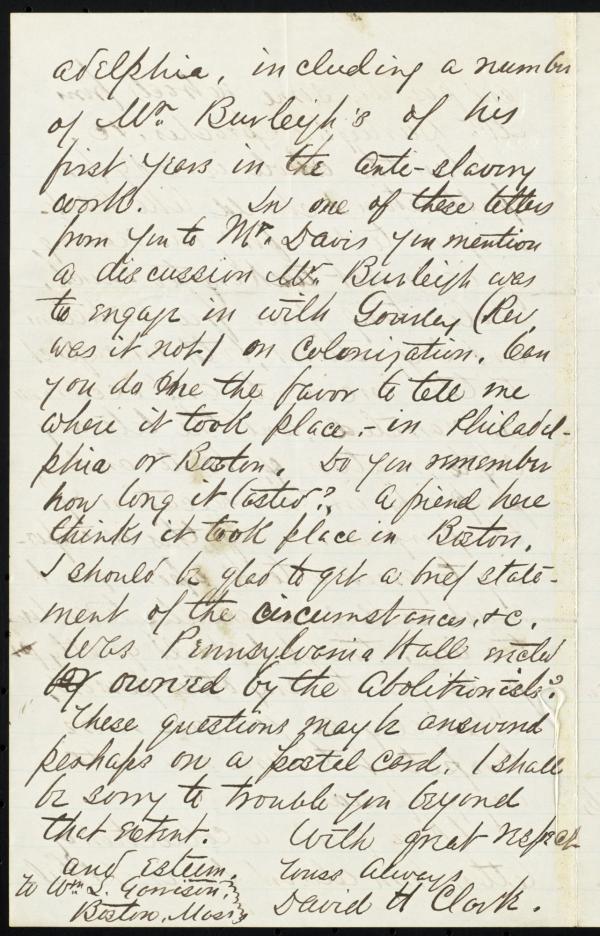 adelphia, including a number
of Mr. Burleigh's of his
first years in the anti-slavery
work. In one of these letters
from you to Mr. Davis you mention
a discussion Mr. Burleigh was
to engage in with Gourley (Rev.
was it not) on Colonization. Can
you do me the favor to tell me
where it took place, - in Philadel-
phia or Boston. Do you remember
how long it lasted? A friend here
thinks it took place in Boston.
I should be glad to get a brief state-
ment of the circumstances, &c.
Was Pennsylvania Hall
owned by the Abolitionists?
These questions may be answered
perhaps on a postal card. I shall
be sorry to trouble you beyond
that extent. With great respect
and esteem, Yours Always
David H Clark.
To Wm L. Garrison,
Boston, Mass.